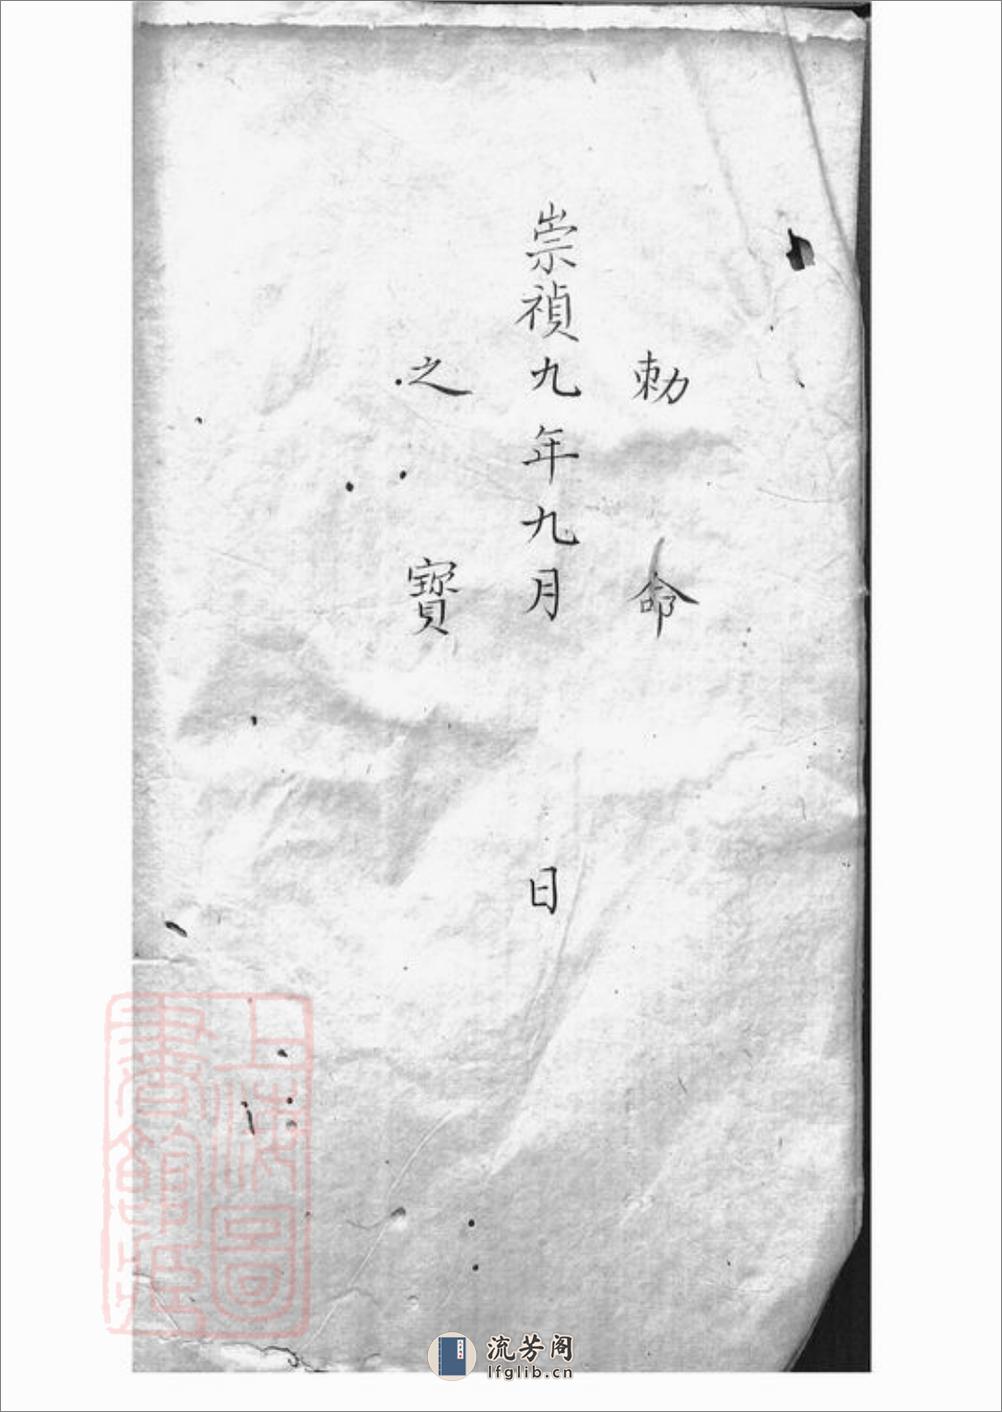 勅命
崇禎九年九月 日
之寶
上海圖
書館藏
流芳阁
lfglib.cn